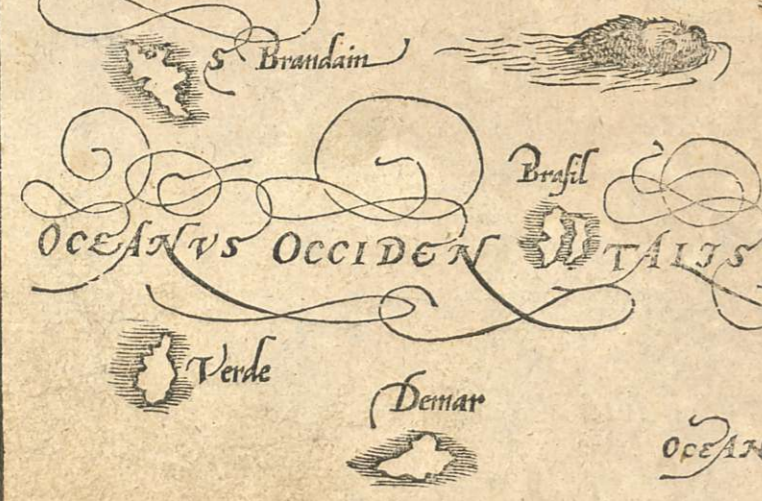 S Brandain
Brasil
OCEANVS OCCIDENTALIS
Verde
Demar
OCEAN